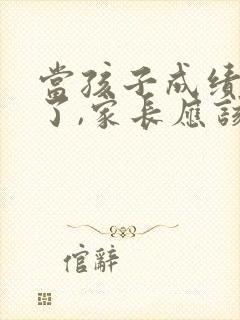 當孩子成績
了,家長應該
倌辭